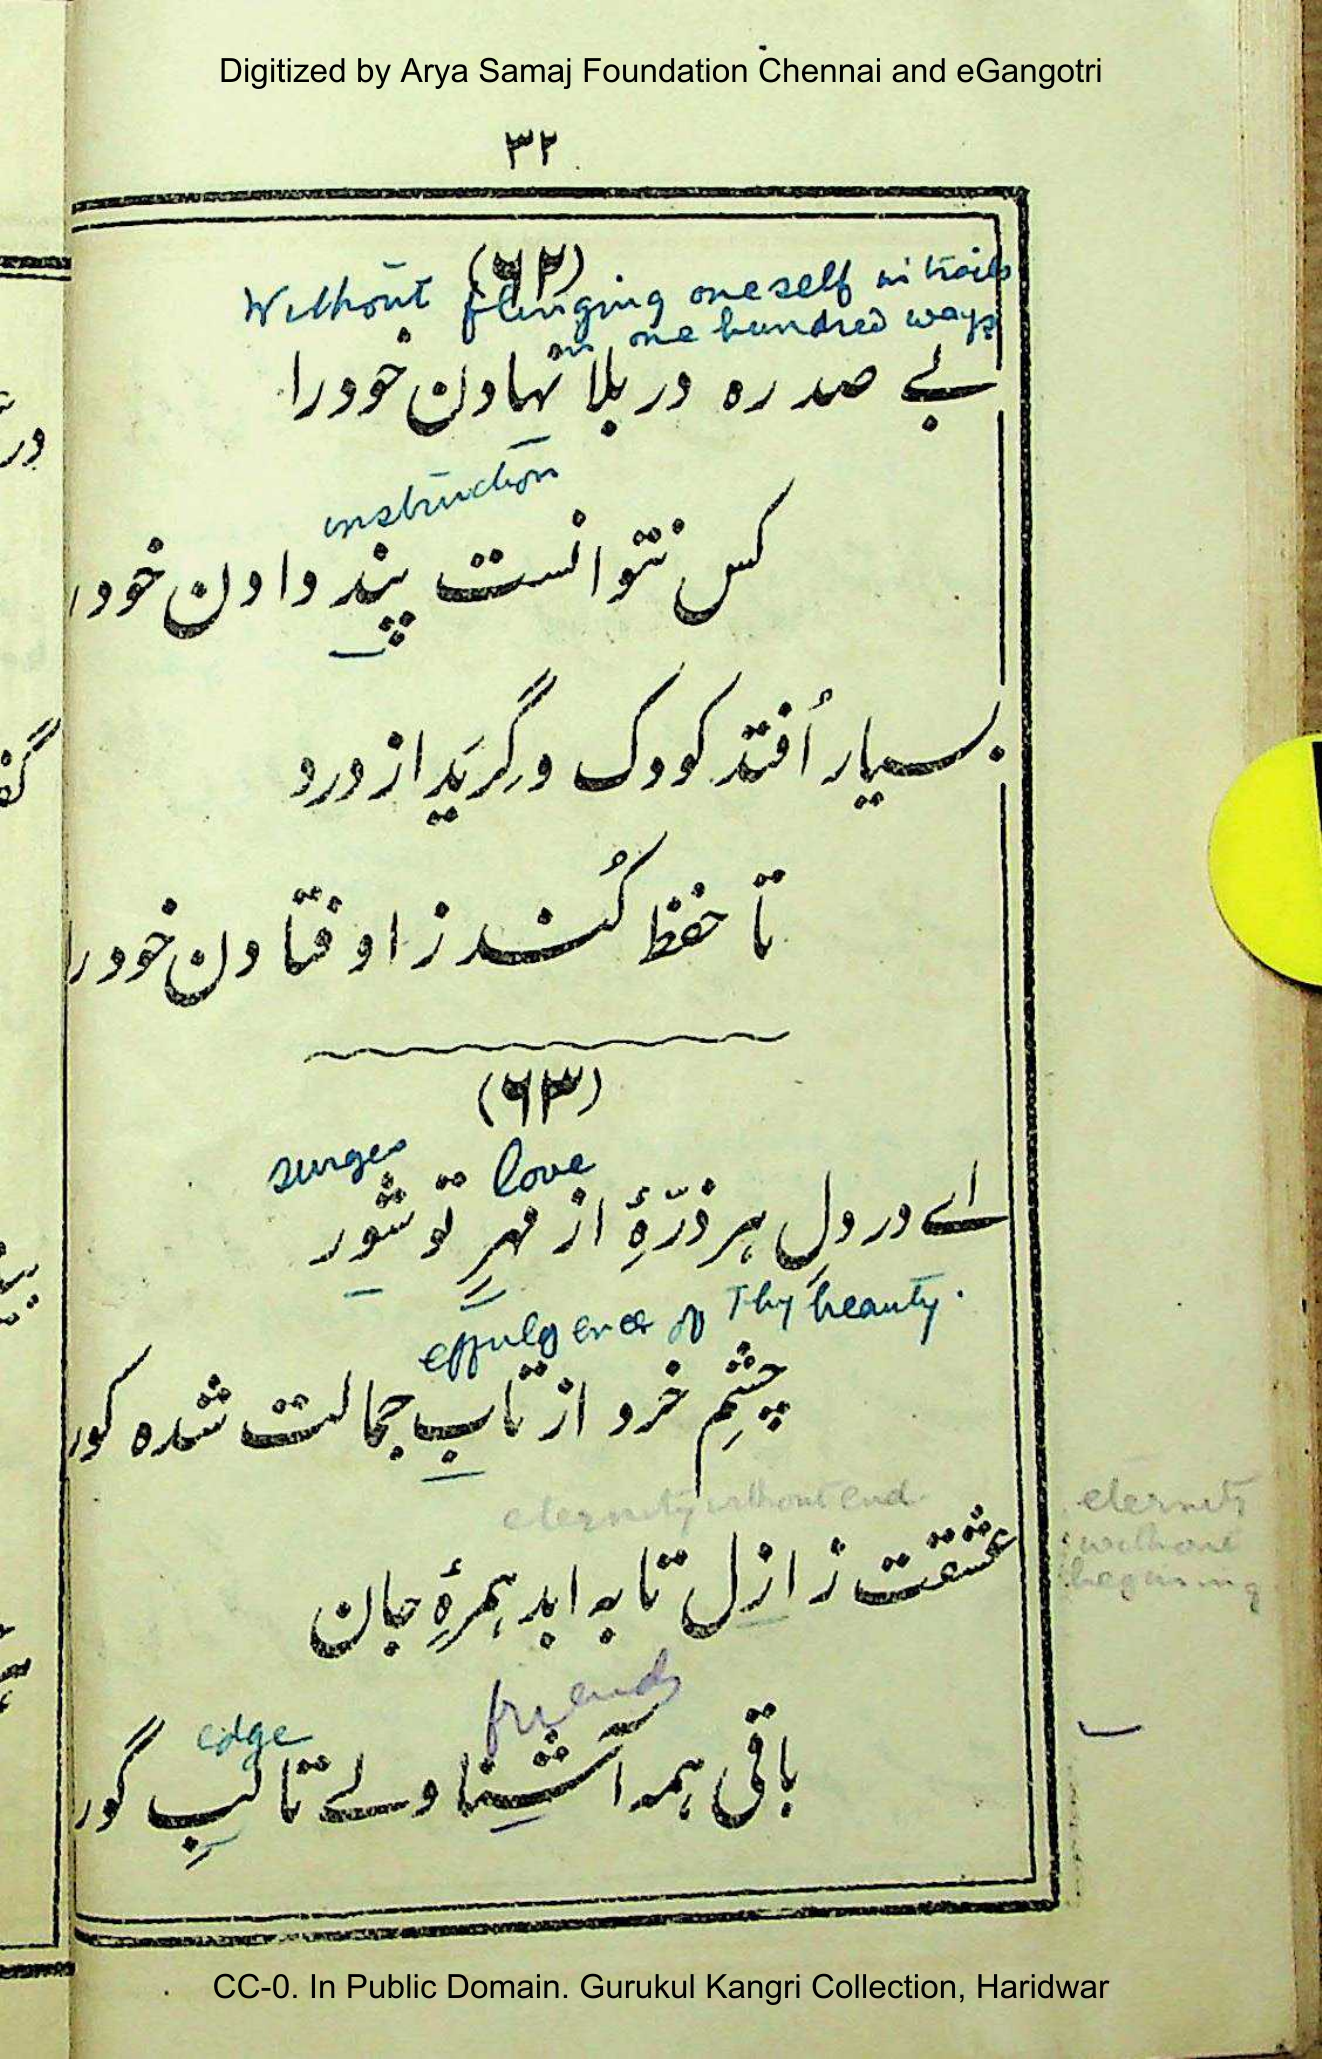 Digitized by Arya Samaj Foundation Chennai and eGangotri
۳۲
(۶۲)
Without flinging oneself in trails
in one hundred ways
بے صد رہ در بلا نہادن خود را
instruction
کس نتوانست پند دادن خود را
بسیار اُفتد کودک و گِریَد از درد
تا حفظ کُند ز اوفتادن خود را
(۶۳)
surges love
اے در دلِ ہر ذرّۂِ از مہرِ تو شور
effulgence of Thy beauty.
چشمِ خرد از تابِ جمالت شدہ کور
eternity without end
eternity
without
begining
عشقت ز ازل تا بہ ابد ہمرۂِ جان
friends
edge
باقی ہمہ آشنا ولے تا لبِ گور
CC-0. In Public Domain. Gurukul Kangri Collection, Haridwar